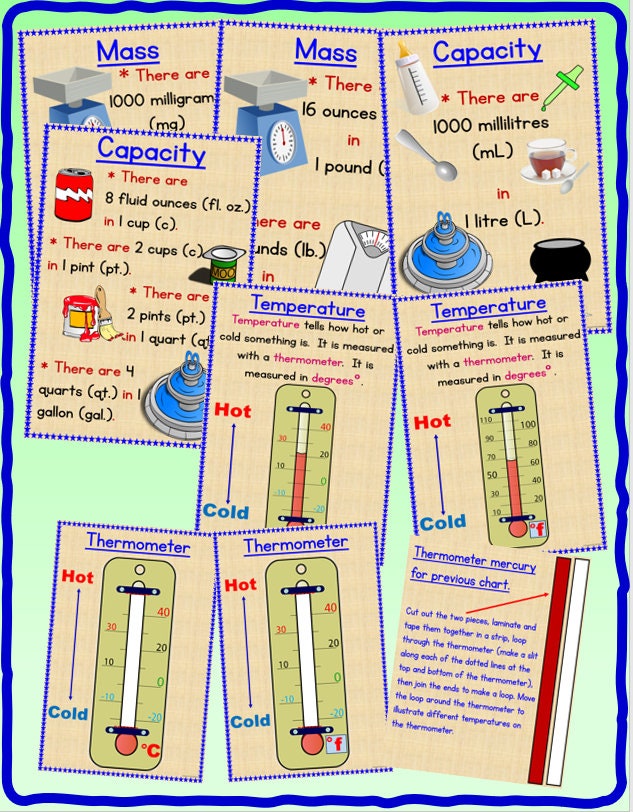 Mass
* There are
1000 milligram
(mg)
Mass
* There
16 ounces
in
1 pound (
here are
unds (lb.)
in
Capacity
* There are
1000 millilitres
(mL)
in
1 litre (L).
Capacity
* There are
8 fluid ounces (fl. oz.)
in 1 cup (c).
* There are 2 cups (c)
in 1 pint (pt.).
MOO
* There are
2 pints (pt.)
in 1 quart (qt
* There are 4
quarts (qt.) in 1
gallon (gal.).
Temperature
Temperature tells how hot or
cold something is. It is measured
with a thermometer. It is
measured in degrees°.
Hot
Cold
40
30
20
10
0
-10
-20
Temperature
Temperature tells how hot or
cold something is. It is measured
with a thermometer. It is
measured in degrees°.
Hot
Cold
110
100
90
80
70
60
50
40
30
20
10
0
°f
Thermometer
Hot
Cold
40
30
20
10
0
-10
-20
°C
Thermometer
Hot
Cold
40
30
20
10
0
-10
-20
°f
Thermometer mercury
for previous chart.
Cut out the two pieces, laminate and
tape them together in a strip, loop
through the thermometer (make a slit
along each of the dotted lines at the
top and bottom of the thermometer),
then join the ends to make a loop. Move
the loop around the thermometer to
illustrate different temperatures on
the thermometer.